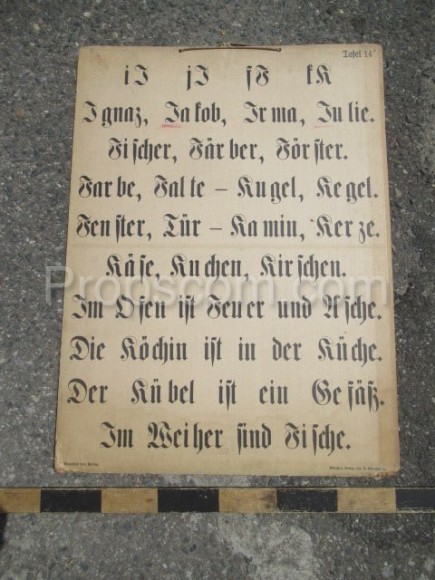 Tafel 14
iI jJ fF kK
Ignaz, Jakob, Irma, Julie.
Fischer, Färber, Förster.
Farbe, Falte – Kugel, Kegel.
Fenster, Tür – Kamin, Kerze.
Käse, Kuchen, Kirschen.
Propscom.com
Im Ofen ist Feuer und Asche.
Die Köchin ist in der Küche.
Der Kübel ist ein Gefäß.
Im Weiher sind Fische.